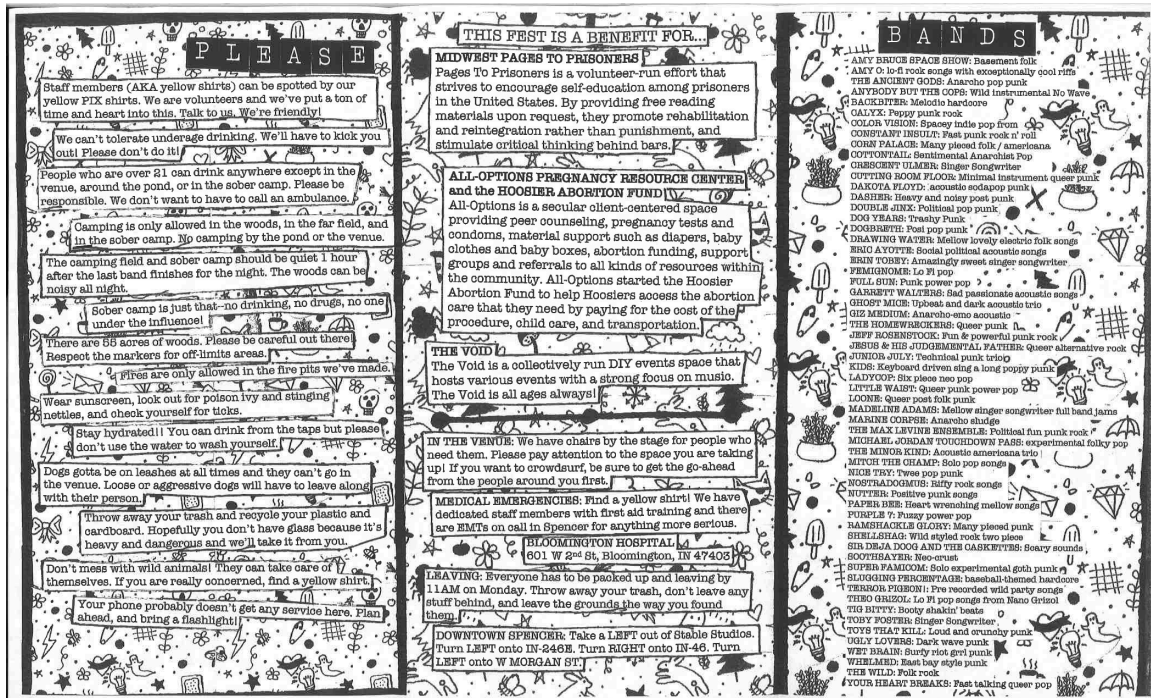 PLEASE
Staff members (AKA yellow shirts) can be spotted by our
yellow PIX shirts. We are volunteers and we've put a ton of
time and heart into this. Talk to us. We're friendly!
We can't tolerate underage drinking. We'll have to kick you
out! Please don't do it!
People who are over 21 can drink anywhere except in the
venue, around the pond, or in the sober camp. Please be
responsible. We don't want to have to call an ambulance.
Camping is only allowed in the woods, in the far field, and
in the sober camp. No camping by the pond or the venue.
The camping field and sober camp should be quiet 1 hour
after the last band finishes for the night. The woods can be
noisy all night.
Sober camp is just that-no drinking, no drugs, no one
under the influence!
There are 55 acres of woods. Please be careful out there!
Respect the markers for off-limits areas.
Fires are only allowed in the fire pits we've made.
Wear sunscreen, look out for poison ivy and stinging
nettles, and check yourself for ticks.
Stay hydrated!! You can drink from the taps but please
don't use the water to wash yourself.
Dogs gotta be on leashes at all times and they can't go in
the venue. Loose or aggressive dogs will have to leave along
with their person.
Throw away your trash and recycle your plastic and
cardboard. Hopefully you don't have glass because it's
heavy and dangerous and we'll take it from you.
Don't mess with wild animals! They can take care of
themselves. If you are really concerned, find a yellow shirt.
Your phone probably doesn't get any service here. Plan
ahead, and bring a flashlight!
THIS FEST IS A BENEFIT FOR...
MIDWEST PAGES TO PRISONERS
Pages To Prisoners is a volunteer-run effort that
strives to encourage self-education among prisoners
in the United States. By providing free reading
materials upon request, they promote rehabilitation
and reintegration rather than punishment, and
stimulate critical thinking behind bars.
ALL-OPTIONS PREGNANCY RESOURCE CENTER
and the HOOSIER ABORTION FUND
All-Options is a secular client-centered space
providing peer counseling, pregnancy tests and
condoms, material support such as diapers, baby
clothes and baby boxes, abortion funding, support
groups and referrals to all kinds of resources within
the community. All-Options started the Hoosier
Abortion Fund to help Hoosiers access the abortion
care that they need by paying for the cost of the
procedure, child care, and transportation.
THE VOID
The Void is a collectively run DIY events space that
hosts various events with a strong focus on music.
The Void is all ages always!
IN THE VENUE: We have chairs by the stage for people who
need them. Please pay attention to the space you are taking
up! If you want to crowdsurf, be sure to get the go-ahead
from the people around you first.
MEDICAL EMERGENCIES: Find a yellow shirt! We have
dedicated staff members with first aid training and there
are EMTs on call in Spencer for anything more serious.
BLOOMINGTON HOSPITAL
601 W 2nd St, Bloomington, IN 47403
LEAVING: Everyone has to be packed up and leaving by
11AM on Monday. Throw away your trash, don't leave any
stuff behind, and leave the grounds the way you found
them.
DOWNTOWN SPENCER: Take a LEFT out of Stable Studios.
Turn LEFT onto IN-246E. Turn RIGHT onto IN-46. Turn
LEFT onto W MORGAN ST.
BANDS
AMY BRUCE SPACE SHOW: Basement folk
AMY O: lo-fi rock songs with exceptionally cool riffs
THE ANCIENT GODS: Anarcho pop punk
ANYBODY BUT THE COPS: Wild instrumental No Wave
BACKBITER: Melodic hardcore
CALYX: Peppy punk rock
COLOR VISION: Spacey indie pop from
CONSTANT INSULT: Fast punk rock n' roll
CORN PALACE: Many pieced folk / americana
COTTONTAIL: Sentimental Anarchist Pop
CRESCENT ULMER: Singer Songwriter
CUTTING ROOM FLOOR: Minimal instrument queer punk
DAKOTA FLOYD: acoustic sodapop punk
DASHER: Heavy and noisy post punk
DOUBLE JINX: Political pop punk
DOG YEARS: Trashy Punk
DOGBRETH: Posi pop punk
DRAWING WATER: Mellow lovely electric folk songs
ERIC AYOTTE: Social political acoustic songs
ERIN TOBEY: Amazingly sweet singer songwriter
FEMIGNOME: Lo Fi pop
FULL SUN: Punk power pop
GARRETT WALTERS: Sad passionate acoustic songs
GHOST MICE: Upbeat and dark acoustic trio
GIZ MEDIUM: Anarcho-emo acoustic
THE HOMEWRECKERS: Queer punk
JEFF ROSENSTOCK: Fun & powerful punk rock
JESUS & HIS JUDGEMENTAL FATHER: Queer alternative rock
JUNIOR JULY: Technical punk trio
KIDS: Keyboard driven sing a long poppy punk
LADYCOP: Six piece neo pop
LITTLE WAIST: Queer punk power pop
LOONE: Queer post folk punk
MADELINE ADAMS: Mellow singer songwriter full band jams
MARINE CORPSE: Anarcho sludge
THE MAX LEVINE ENSEMBLE: Political fun punk rock
MICHAEL JORDAN TOUCHDOWN PASS: experimental folky pop
THE MINOR KIND: Acoustic americana trio
MITCH THE CHAMP: Solo pop songs
NICE TRY: Twee pop punk
NOSTRADOGMUS: Riffy rock songs
NUTTER: Positive punk songs
PAPER BEE: Heart wrenching mellow songs
PURPLE 7: Fuzzy power pop
RAMSHACKLE GLORY: Many pieced punk
SHELLSHAG: Wild styled rock two piece
SIR DEJA DOOG AND THE CASKETTES: Scary sounds
SOOTHSAYER: Neo-crust
SUPER FAMICOM: Solo experimental goth punk
SLUGGING PERCENTAGE: baseball-themed hardcore
TERROR PIGEON!: Pre recorded wild party songs
THEO GRIZOL: Lo Fi pop songs from Nano Grizol
TIG BITTY: Booty shakin' beats
TOBY FOSTER: Singer Songwriter
TOYS THAT KILL: Loud and crunchy punk
UGLY LOVERS: Dark wave punk
WET BRAIN: Surfy riot grrl punk
WHELMED: East bay style punk
THE WILD: Folk rock
YOUR HEART BREAKS: Fast talking queer pop